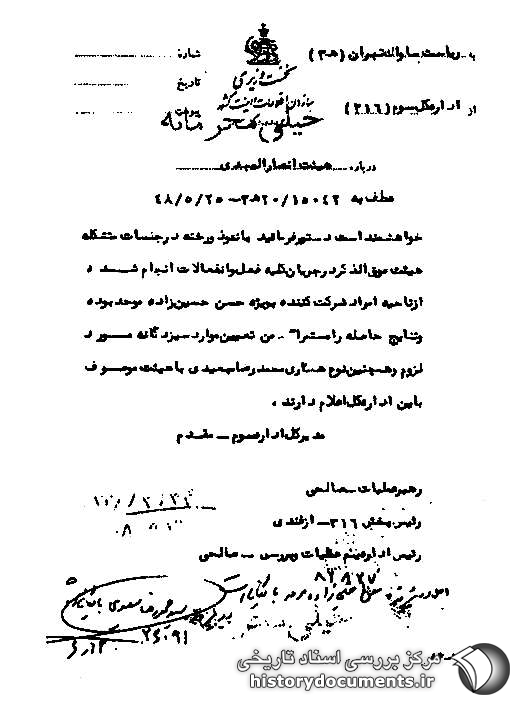 به ریاست ساواک تهران (۳ه‍) شماره
نخست وزیری
تاریخ
سازمان اطلاعات و امنیت کشور
از اداره کل سوم (۳۱۶) پیوست
خیلی محرمانه
درباره هیئت انصارالمهدی
عطف به ۱۵۰۴۲/۲۰ه‍۳-۴۸/۵/۲۵
خواهشمند است دستور فرمائید با نفوذ و رخنه در جلسات متشکله
هیئت فوق الذکر در جریان کلیه فعل و انفعالات انجام شده
از ناحیه افراد شرکت کننده بویژه حسن حسین زاده موحد بوده
و نتایج حاصله را مستمرا" ضمن تعیین موارد سیزدگانه مورد
لزوم و همچنین نوع همکاری محمدرضا سعیدی با هیئت موصوف
باین اداره کل اعلام دارند.
مدیرکل اداره سوم - مقدم
رهبر عملیات صالحی
رئیس بخش ۳۱۶ - ازغندی
رئیس اداره یکم عملیات و بررسی - صالحی
مرکز بررسی اسناد تاریخی
historydocuments.ir